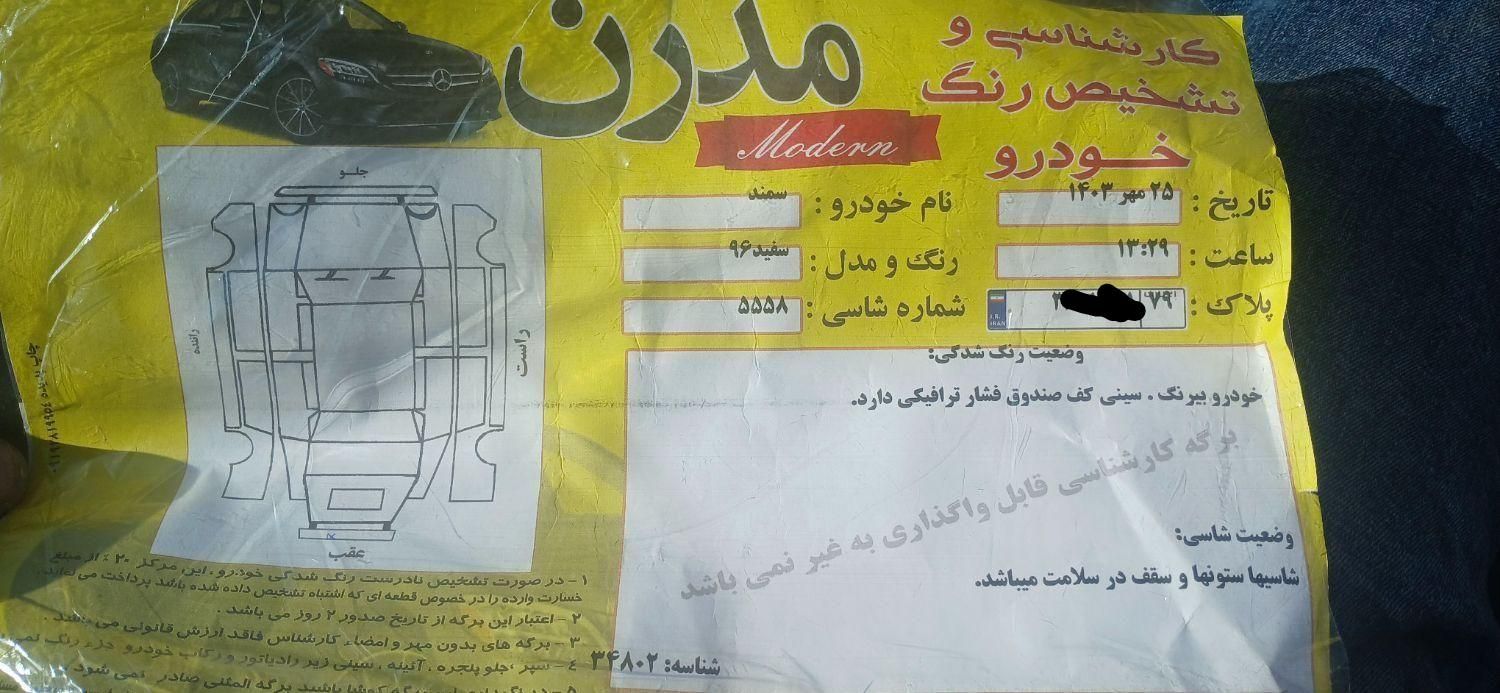 کارشناسی و
تشخیص رنگ
خودرو
مدرن
Modern
تاریخ : ۲۵ مهر ۱۴۰۳
نام خودرو : سمند
ساعت : ۱۳:۲۹
رنگ و مدل : سفید۹۶
پلاک : ۷۹
I.R. IRAN
شماره شاسی : ۵۵۵۸
جلو
راننده
راست
عقب
وضعیت رنگ شدگی:
خودرو بیرنگ . سینی کف صندوق فشار ترافیکی دارد.
برگه کارشناسی قابل واگذاری به غیر نمی باشد
وضعیت شاسی:
شاسیها ستونها و سقف در سلامت میباشد.
شناسه: ۳۴۸۰۲
۱ - در صورت تشخیص نادرست رنگ شدگی خودرو ، این مرکز ۲۰ ٪ از مبلغ
خسارت وارده را در خصوص قطعه ای که اشتباه تشخیص داده شده باشد پرداخت می نماید .
۲ - اعتبار این برگه از تاریخ صدور ۲ روز می باشد .
۳ - برگه های بدون مهر و امضاء کارشناس فاقد ارزش قانونی می باشد .
۴ - سپر ،جلو پنجره ، آئینه ، سینی زیر رادیاتور و رکاب خودرو جزء رنگ
چاپ پدیده